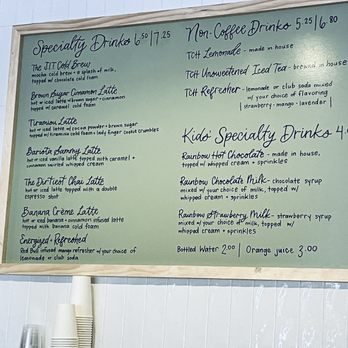 Specialty Drinks 6.50 | 7.25
The JIT Cold Brew
mocha cold brew + a splash of milk,
topped w/ cold foam
Brown Sugar Cinnamon Latte
hot or iced latte w/ brown sugar + cinnamon
topped w/ caramel cold foam
Tiramisu Latte
hot or iced latte w/ cocoa powder + brown sugar
topped w/ tiramisu cold foam + lady finger cookie crumbles
Barista Sammy Latte
hot or iced vanilla latte topped with caramel +
cinnamon swirled whipped cream
The Dirtiest Chai Latte
hot or iced latte topped with a double
espresso shot
Banana Crème Latte
hot or iced banana + cinnamon infused latte
topped with banana cold foam
Energized + Refreshed
Red Bull infused mango refresher w/ your choice of
lemonade or club soda
Non-Coffee Drinks 5.25 | 6.80
TCH Lemonade - made in house
TCH Unsweetened Iced Tea - brewed in house
TCH Refresher - lemonade or club soda mixed
w/ your choice of flavoring
| strawberry · mango · lavender |
Kids' Specialty Drinks 4
Rainbow Hot Chocolate - made in house,
topped w/ whipped cream + sprinkles
Rainbow Chocolate Milk - chocolate syrup
mixed w/ your choice of milk, topped w/
whipped cream + sprinkles
Rainbow Strawberry Milk - strawberry syrup
mixed w/ your choice of milk, topped w/
whipped cream + sprinkles
Bottled Water 2.00 | Orange juice 3.00